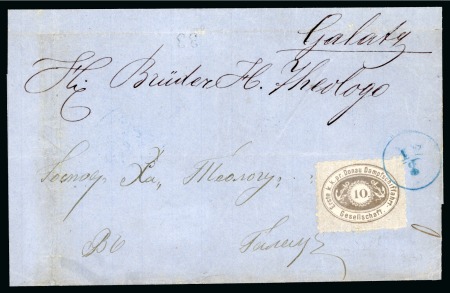 93
Galatz
Brüder H. Theologo
Господ. Ха. Теологу
Въ Галацъ
Erste k.k. pr. Donau Dampfschiffahrt
10.
Gesellschaft